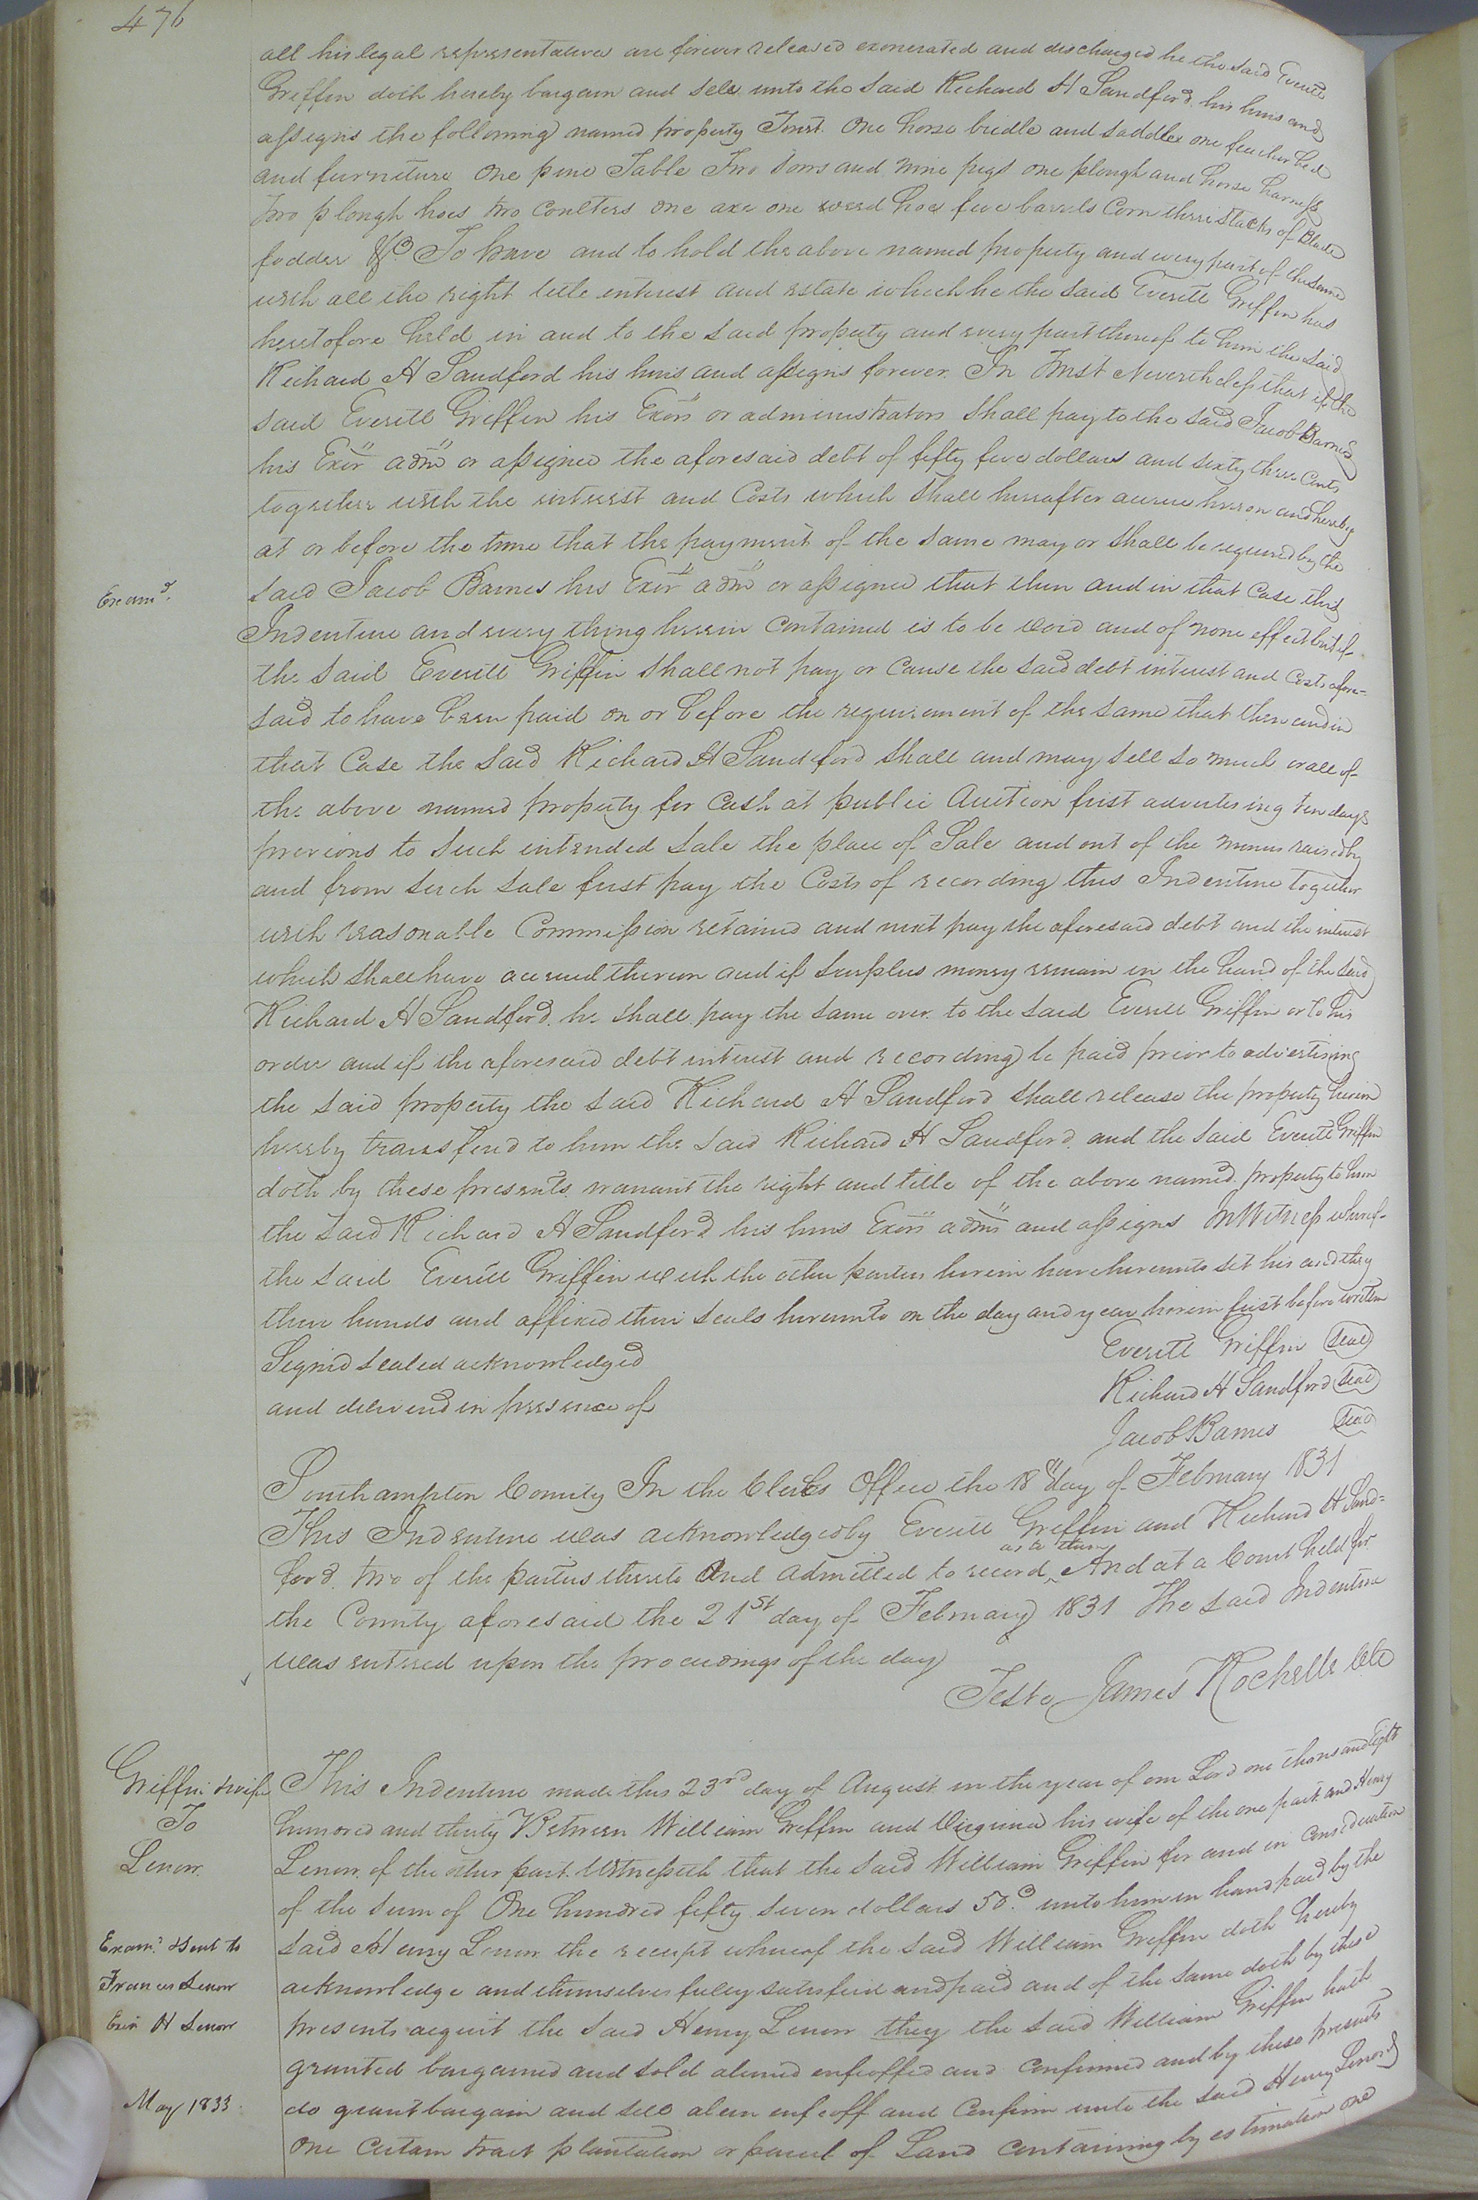 476
all his legal representatives are forever released exonerated and discharged he the said Everitt
Griffin doth hereby bargain and sell unto the said Richard H Sandford his heirs and
assigns the following named property To wit One horse bridle and saddle one feather bed
and furniture One pine Table Two Sows and nine pigs one plough and horse harness
two plough hoes two coulters one axe one weed hoe five barrels Corn three stacks of Blade
fodder &c. To have and to hold the above named property and every part of the same
with all the right title interest and estate which he the said Everitt Griffin has
heretofore held in and to the said property and every part thereof to him the said
Richard H Sandford his heirs and assigns forever. In Trust Nevertheless that if the
said Everitt Griffin his Exors or administrators shall pay to the said Jacob Barnes
his Exor admr or assignee the aforesaid debt of fifty five dollars and sixty three Cents
together with the interest and Costs which shall hereafter accrue hereon and hereby
at or before the time that the payment of the same may or shall be required by the
Exam.d
said Jacob Barnes his Exor admr or assignee that then and in that Case this
Indenture and every thing herein Contained is to be void and of none effect but if
the said Everitt Griffin shall not pay or Cause the said debt interest and Costs afore-
said to have been paid on or before the requirement of the same that then and in
that Case the said Richard H Sandford shall and may sell so much or all of
the above named property for Cash at public Auction first advertising ten days
previous to such intended sale the place of Sale and out of the monies raised by
and from such sale first pay the Costs of recording this Indenture together
with reasonable Commission retained and next pay the aforesaid debt and the interest
which shall have accrued thereon and if surplus money remain in the hand of the said
Richard H Sandford he shall pay the same over to the said Everitt Griffin or to his
order and if the aforesaid debt interest and recording be paid prior to advertising
the said property the said Richard H Sandford shall release the property herein
hereby transferd to him the said Richard H Sandford and the said Everitt Griffin
doth by these presents warrant the right and title of the above named property to him
the said Richard H Sandford his heirs Exors admrs and assigns In Witness whereof
the said Everitt Griffin with the other parties herein have hereunto set his and they
their hands and affixed their seals hereunto on the day and year herein first before written
Signed sealed acknowledged
and delivered in presence of
Everitt Griffin (Seal)
Richard H Sandford (Seal)
Jacob Barnes (Seal)
Southampton County In the Clerks Office the 18th day of February 1831
This Indenture was acknowledged by Everitt Griffin and Richard H Sand=
ford two of the parties thereto and admitted to record as to them And at a Court held for
the County aforesaid the 21st day of February 1831 The said Indenture
was entered upon the proceedings of the day
Teste James Rochelle Clk
Griffin & wife
To
Lenow
This Indenture made this 23rd day of August in the year of our Lord one thousand Eight
hundred and thirty Between William Griffin and Virginia his wife of the one part and Henry
Lenow of the other part Witnesseth that the said William Griffin for and in Consideration
of the sum of One hundred fifty seven dollars 50c unto him in hand paid by the
Exam.d & sent to
Frances Lenow
Exix H Lenow
May 1833
said Henry Lenow the receipt whereof the said William Griffin doth hereby
acknowledge and themselves fully satisfied and paid and of the same doth by these
presents acquit the said Henry Lenow they the said William Griffin hath
granted bargained and sold aliened enfeoffed and Confirmed and by these presents
do grant bargain and sell alien enfeoff and Confirm unto the said Henry Lenow
One certain tract plantation or parcel of Land Containing by estimation one